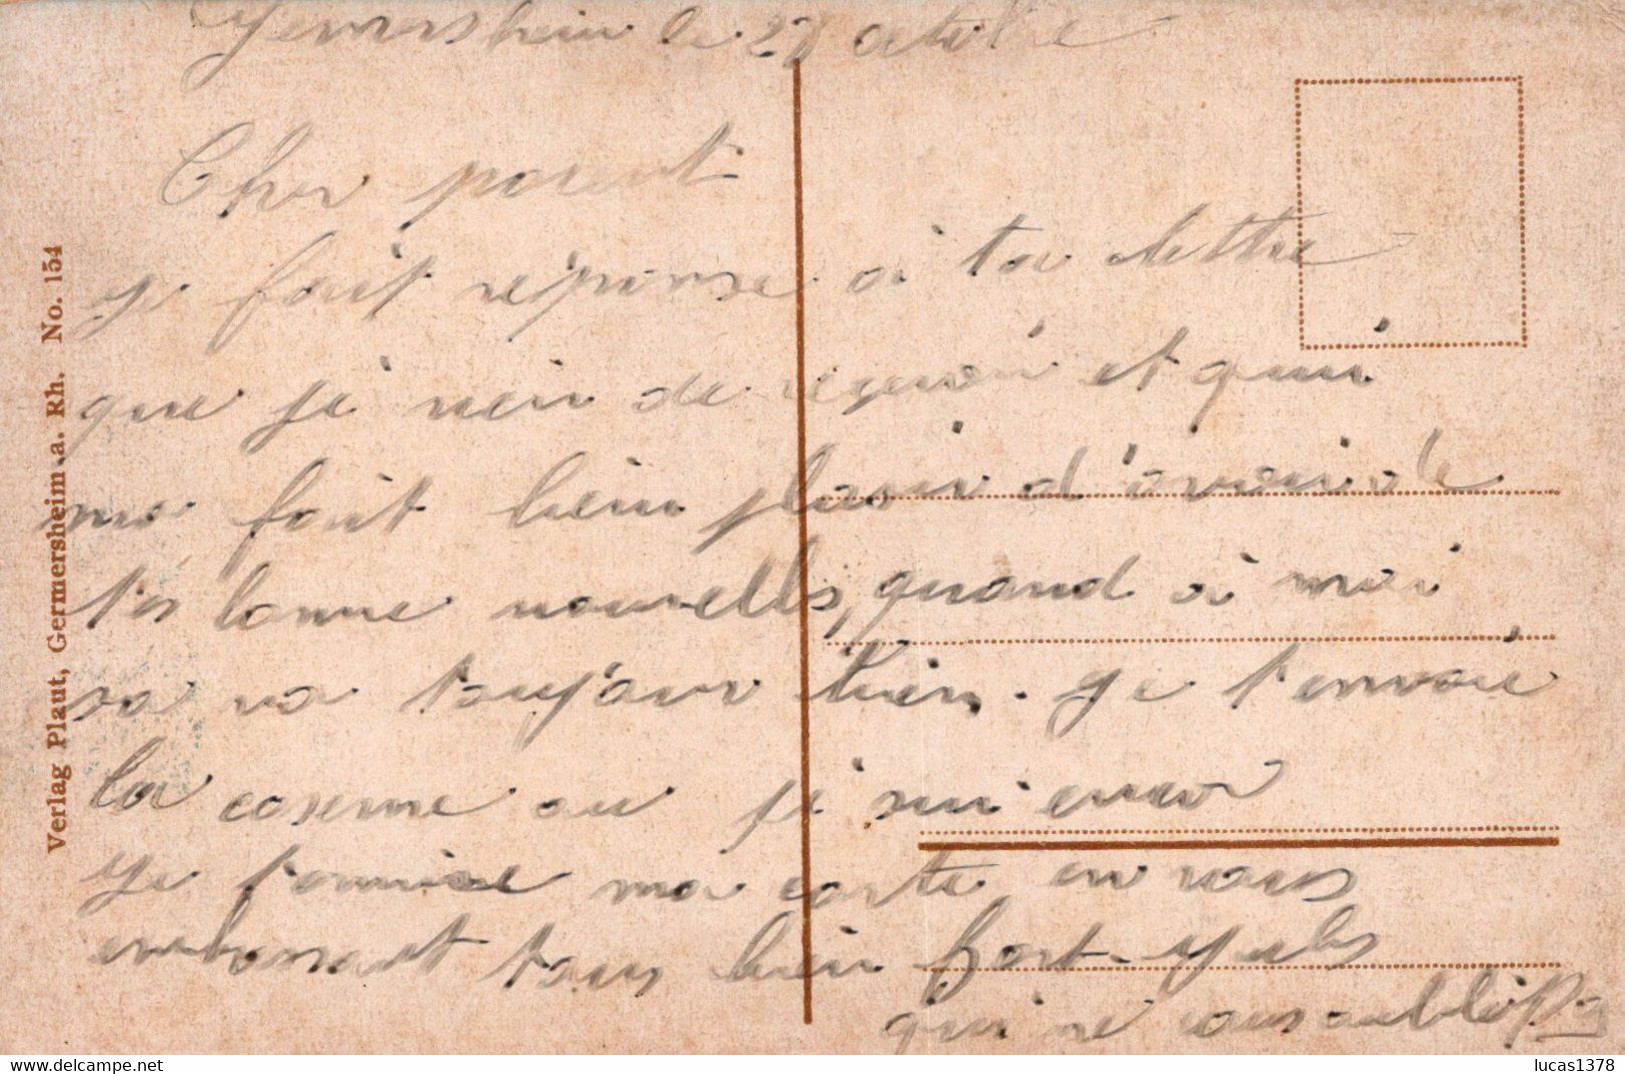 Germersheim le 27 octobre
Cher parent
je fait réponse à ta lettre
que je vien de reçevoir et qui
me fait bien plaisir d'avoir de
tes bonne nouvells, quand à moi
sa va toujour bien. Je t'envoie
la caserne ou je sui encor
Je termine ma carte en vous
embrassant tous bien fort. Jules
qui ne vous oubli pas
Verlag Plaut, Germersheim a. Rh. No. 154
delcampe.net
lucas1378